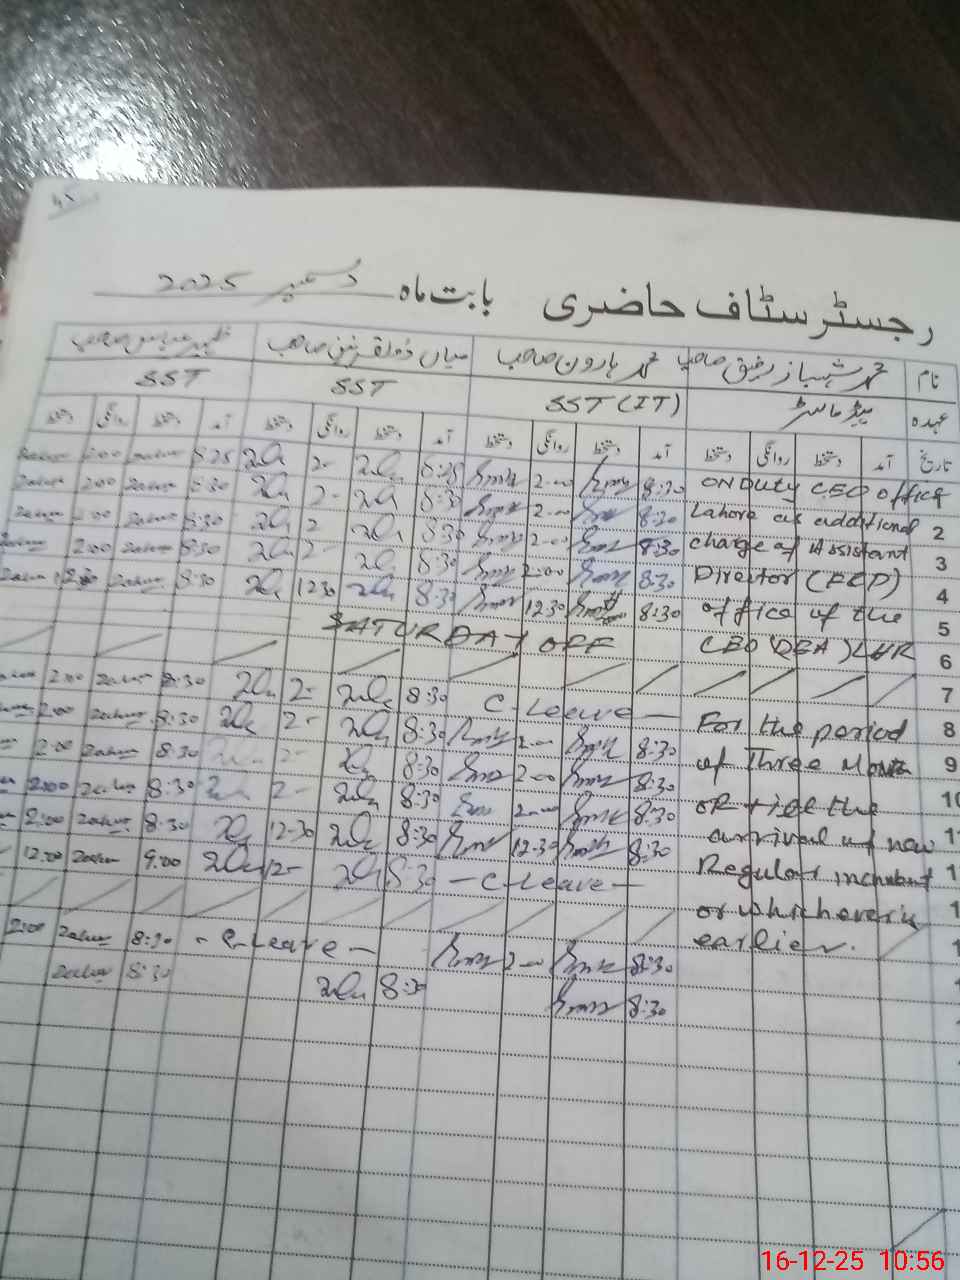 رجسٹر سٹاف حاضری بابت ماہ دسمبر 2025
نام محمد شہباز رفیق صاحب محمد ہارون صاحب میاں ذوالقرنین صاحب ظہیر عباس صاحب
عہدہ ہیڈ ماسٹر SST (IT) SST SST
تاریخ آمد دستخط روانگی دستخط آمد دستخط روانگی دستخط آمد دستخط روانگی دستخط آمد دستخط روانگی دستخط
ON Duty CEO office 8:30 2-00 8:25 2- 8:25 2:00
2 Lahore as additional 8:30 2-00 8:30 2- 8:30 2:00
3 charge of Assistant 8:30 2-00 8:30 2 8:30 2:00
4 Director (EEP) 8:30 2:00 8:30 2- 8:30 2:00
5 office of the 8:30 12:30 8:30 1230 8:30
6 CEO (DEA) LHR SATURDAY OFF
7
8 For the period C-Leave 8:30 2- 8:30 2:00
9 of Three Month 8:30 2-00 8:30 2- 8:30 2:00
10 OR till the 8:30 2-00 8:30 2- 8:30 2:00
arrival of new 8:30 2-00 8:30 2- 8:30 2:00
Regular incumbent 8:30 12-30 8:30 12-30 8:30 2:00
or whichever is - C-Leave - 8:30 12- 9:00 12:00
earlier.
8:30 2-00 - C-Leave - 8:30 2:00
8:30 8:30 8:30
16-12-25 10:56